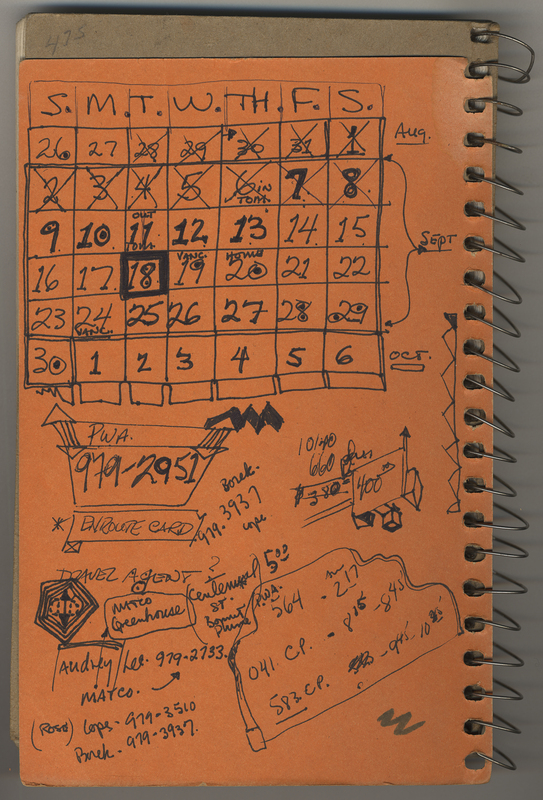 475
S. M. T. W. TH. F. S.
26 27 28 29 30 31 1 Aug.
2 3 4 5 6 in TOM. 7 8
9 10 OUT 11 TOM. 12 13 14 15 SEPT
16 17 18 VANC. 19 HOME 20 21 22
23 24 VANC. 25 26 27 28 29
30 1 2 3 4 5 6 OCT.
P.W.A.
979-2951
10/40
660 plus
380
400
Borek.
979-3937
* ENROUTE CARD
TRAVEL AGENT?
Centennial ST.
MATCO
Greenhouse
Audrey / Les. 979-2733.
MATCO.
(ROSS) Cops - 979-3510
Borek - 979-3937.
5 00
P.W.A.
564 - 217
041. C.P. - 8 15 - 8 45
583 C.P. - 9 45 - 10 25